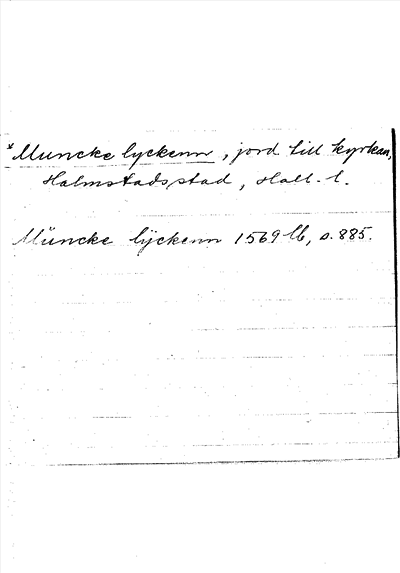 *Muncke lyckenn, jord till kyrkan,
Halmstads stad, Hall. l.
Müncke lÿckenn 1569 lb, s. 885.